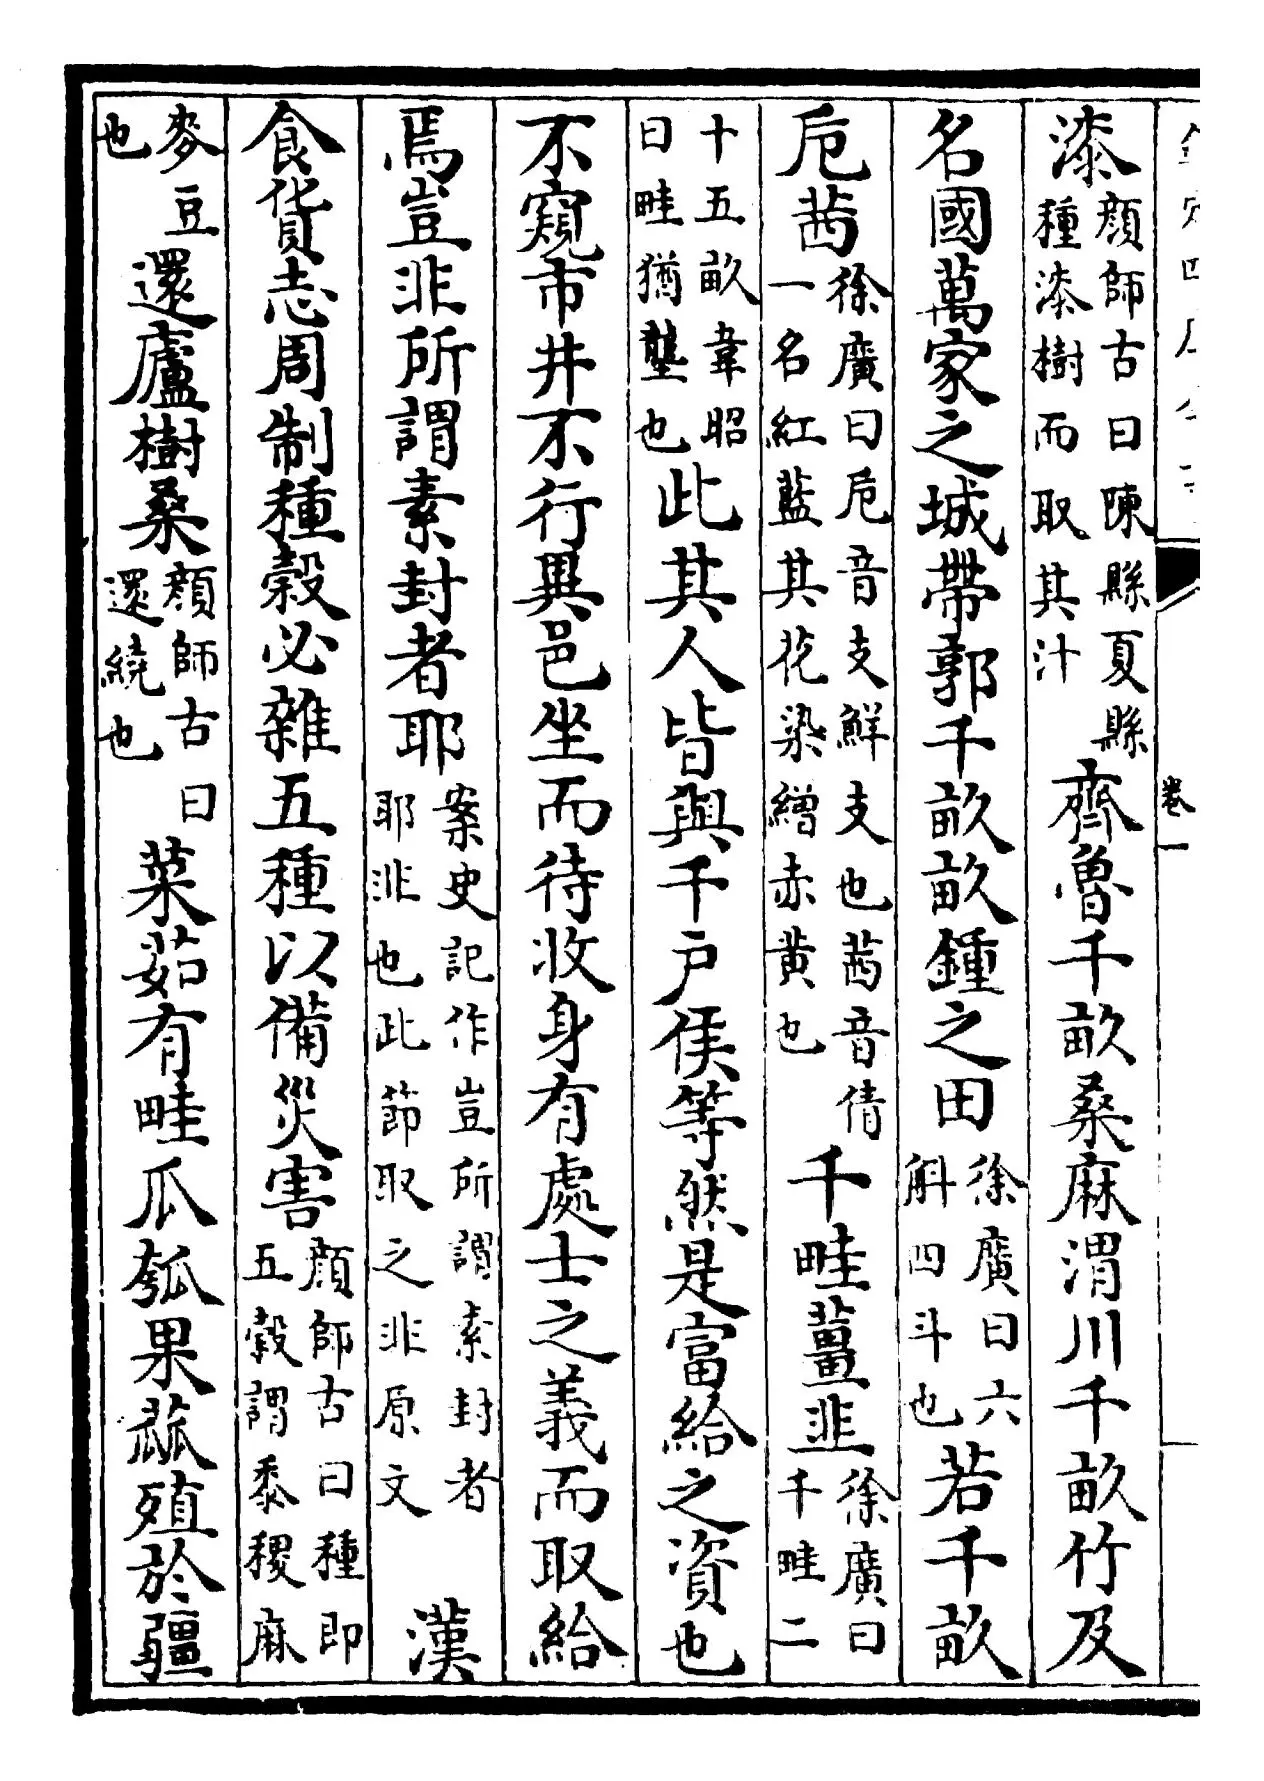 欽定四庫全書
卷一
漆顔師古曰陳縣夏縣種漆樹而取其汁齊魯千畝桑麻渭川千畝竹及
名國萬家之城帶郭千畝畝鍾之田徐廣曰六斛四斗也若千畝
巵茜徐廣曰巵音支鮮支也茜音倩一名紅藍其花染繒赤黄也千畦薑韭徐廣曰千畦二
十五畝韋昭曰畦猶壟也此其人皆與千户侯等然是富給之資也
不窺市井不行異邑坐而待收身有處士之義而取給
焉豈非所謂素封者耶案史記作豈所謂素封者耶非也此節取之非原文漢
食貨志周制種穀必雜五種以備災害顔師古曰種即五穀謂黍稷麻
麥豆也還廬樹桑顔師古曰還繞也菜茹有畦瓜瓠果蓏殖於疆